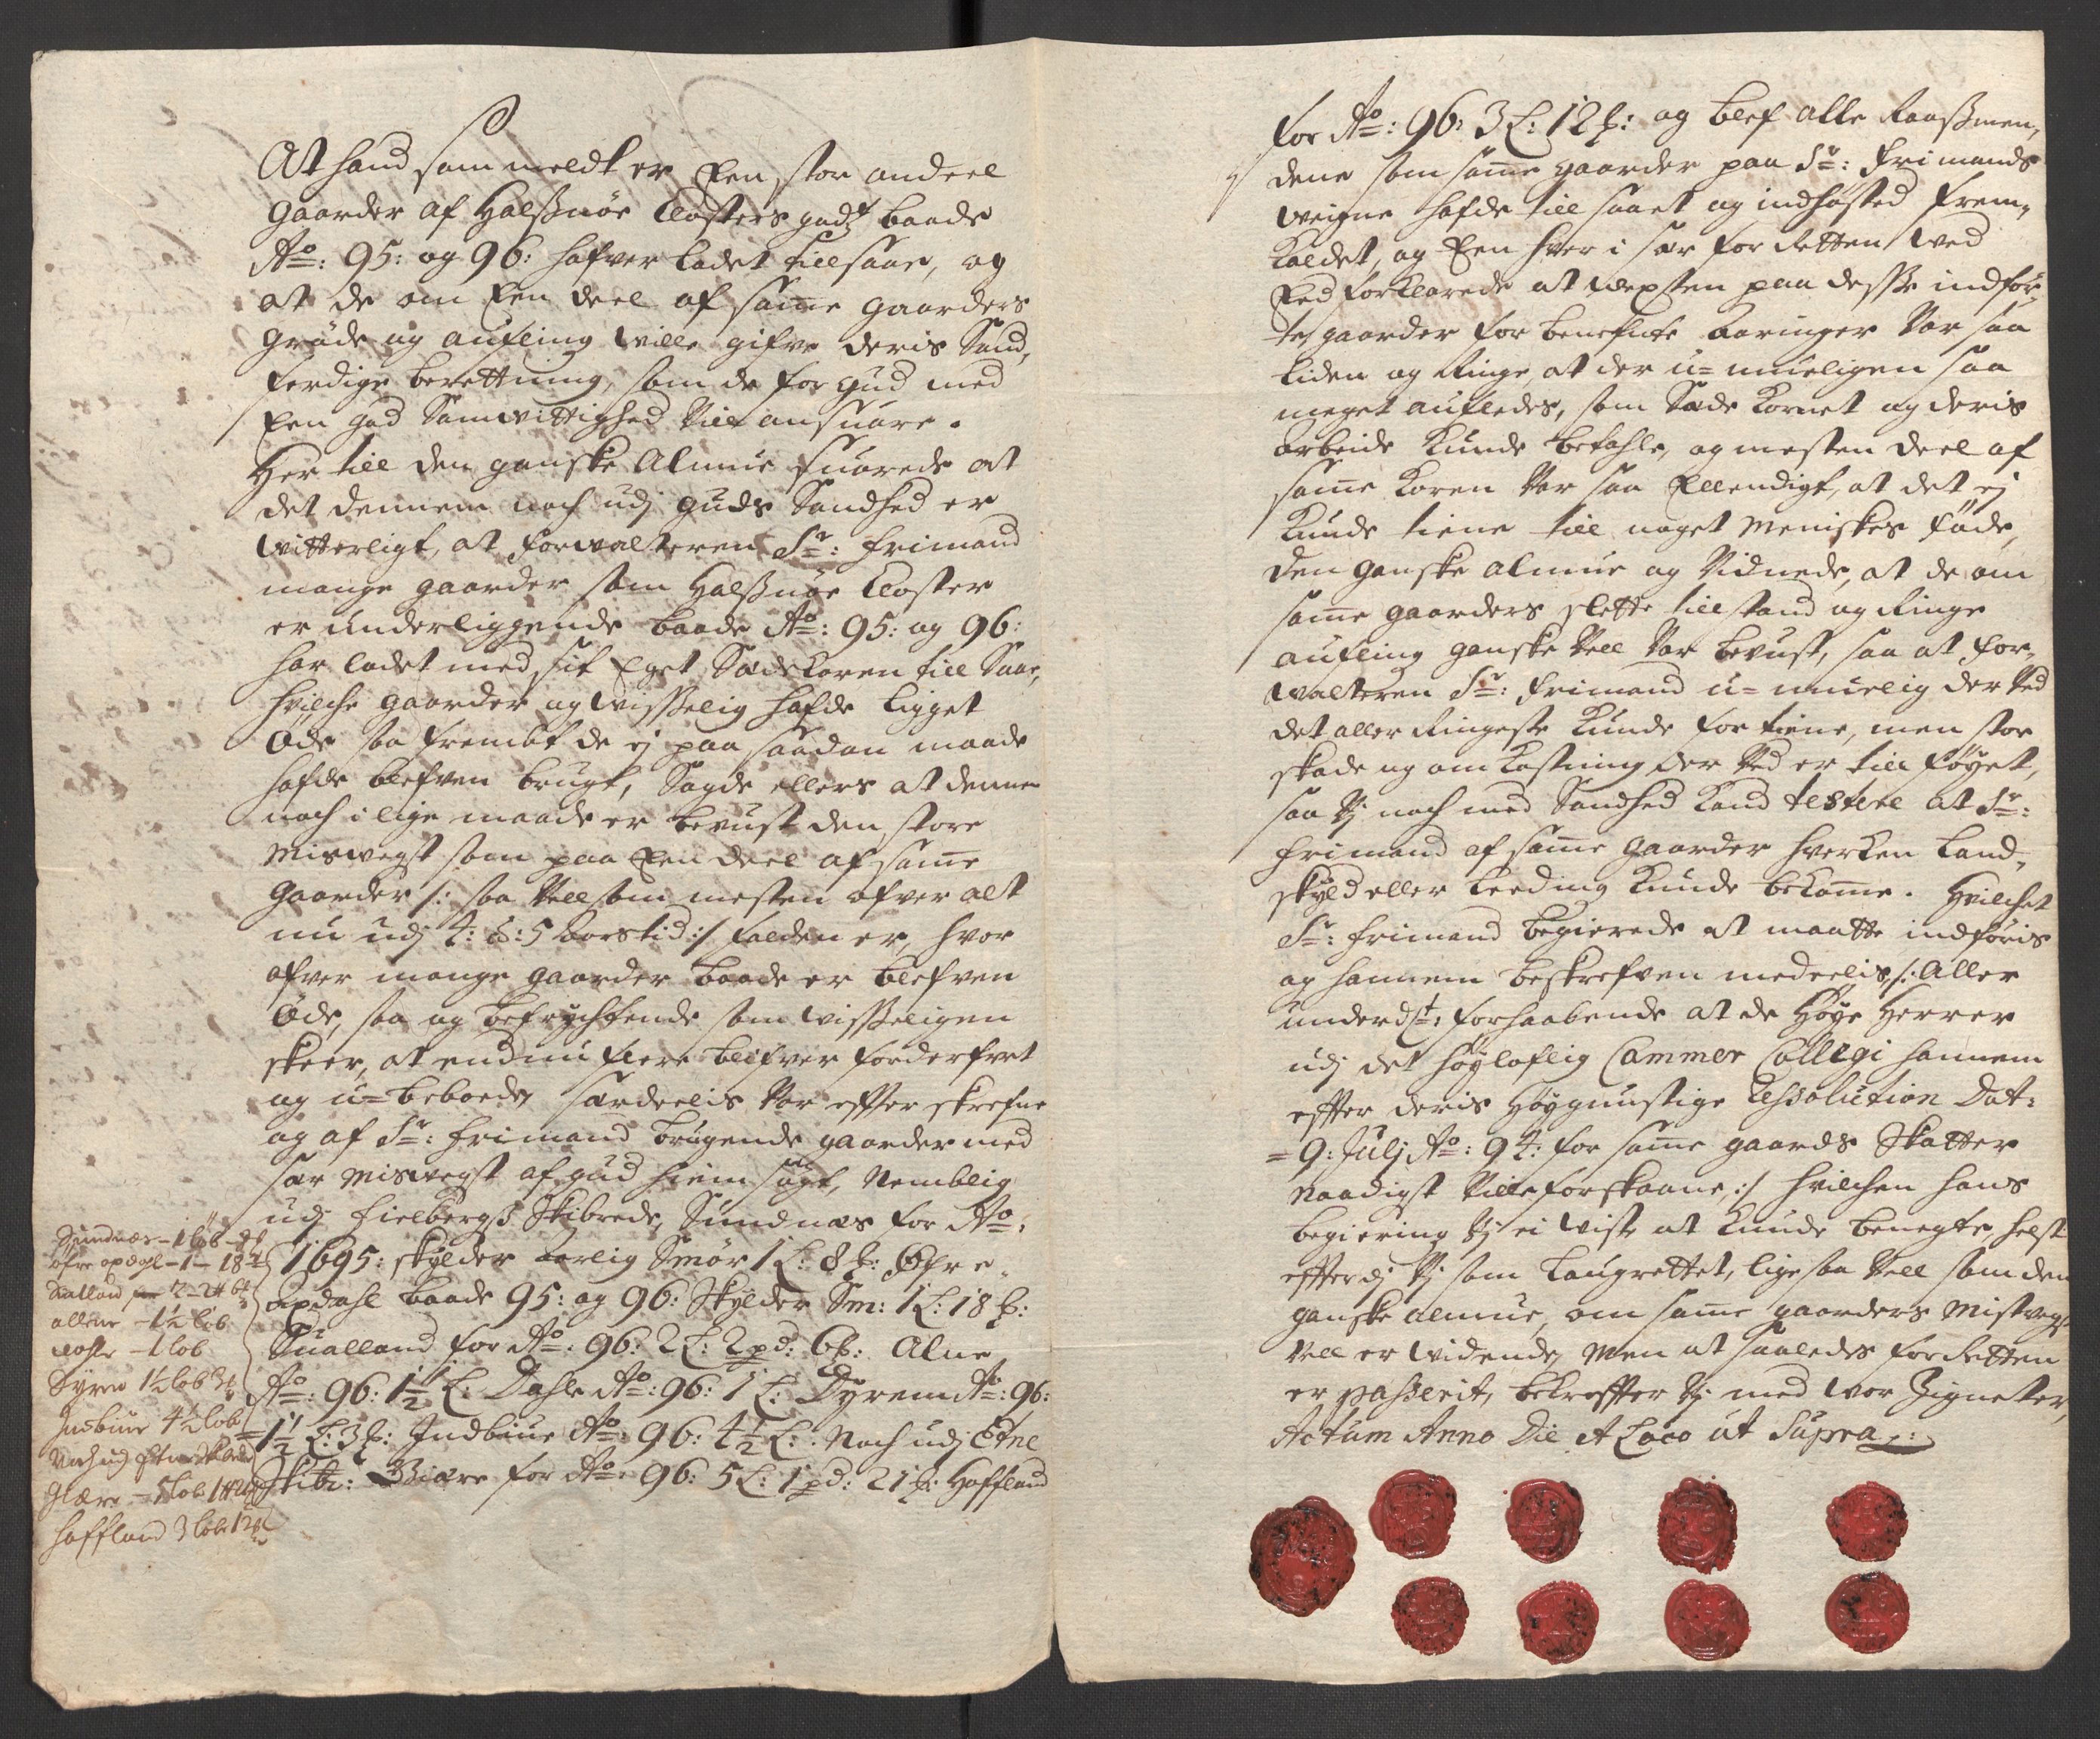 At hand som meldt er Een stor andeel
gaarder af Halßnöe Closters godts baade
Ao: 95: og 96: hafver ladet tilsaae, og
at de om Een deel af same gaarders
grøde og aufling wille gifve deris Sand„
ferdige berettning, som de for gud med
Een god Samvittighed vill ansuare.
Her till den ganske Almue suarede at
det dennem noch udj guds Sandhed er
witterligt, at forwalteren Sr: Frimand
mange gaarder som Halßnöe Closter
er underliggende baade Ao: 95: og 96:
har ladet med sit Eget Sædekoren till Saae,
hvilche gaarder og wisselig hafde ligget
øde saa frembt de ej paa saadan maade
hafde blefven brugt, Sagde ellers at dennem
noch i lige maade er bevust den store
Misvegst som paa Een deel af same
gaarder /: saa vell som mesten ofver alt
nu udj 4: à: 5 Aarstid :/ falden er, hvor
ofver mange gaarder baade er blefven
øde, saa og befrychtende som wisseligen
skeer, at endnu flere blifver forderfvet
og u-beboede, særdeelis var effterskrefne
og af Sr: Frimand brugende gaarder med
saar Misvegst af gud hiemsøgt, Nemblig
udj Fielbergs Skibrede, Sundnæs for Ao:
1695: skylder aarlig Smör 1 L: 8 ℔: Øfre„
opdahl baade 95: og 96: Skylder Sm: 1 L: 18 ℔:
Sualland for Ao: 96: 2 L: 2 pd: 6 ℔: Alne
Ao: 96: 1½ L: Dahle Ao: 96: 1 L: Dyrem Ao: 96:
1½ L: 3 ℔: Indbiue Ao: 96: 4½ L: Noch udj Etne
Skibr: Giære for Ao: 96: 5 L: 1 pd: 21 ℔: Haffland
Sundnæs - 1 löb - 8
öfre opdahl - 1 - 18
Sualland 2 - 2 6
allene - 1½ löb
1 löb
Dyrem 1½ löb 3
Indbiue 4½ löb
Noch udj Etne Skibrede
Giære - 5 löb 1 21
Haffland 3 löb 12
for Ao: 96: 3 L: 12 ℔: og blef alle Laaßmen„
dene som same gaarder paa Sr: Frimands
weigne hafde till saaet og indhøsted frem„
kaldet, og Een hver i sær for Retten wed
Eed forklarede at vexten paa desse indför„
te gaarder for benefnte Aaringer var saa
liden og Ringe, at der u-mueligen saa
meget aufledes, som Sæde Kornet og deris
arbeide kunde betahle, og mesten deel af
same koren var saa Ellendigt, at det ej
kunde tiene till noget Meniskes føde,
den ganske almue og Vidnede, at de om
same gaarders slette tillstand og Ringe
aufling ganske vell var bevust, saa at for„
walteren Sr: Frimand u-muelig der ved
det aller Ringeste kunde fortiene, men stor
skade og omkostning der ved er till føyet,
saa vj noch med Sandhed kand testere at Sr:
Frimand af same gaarder hverken Land„
skyld eller Leeding kunde bekome. Hvilchet
Sr: Frimand begierede at maatte indføris
og hannem beskrefven meddeelis /: Aller
underdst: forhaabende at de Høye Herrer
udj det høyloflig Cammer Collegi hannem
effter deris høygunstige Ressolution Dat:
9: Julj Ao: 94: for same gaards Skatter
Naadigst ville forskaane, :/ hvilchen hans
begiering vj ei wiste at kunde benegte, helst
efftterdj vj som Laugrettet, lige saa vell som den
ganske almue, om same gaarders Misvegst
vell er widende, Men at saaledes for Retten
er passerit, bekreffter vj med wor Zigneter,
Actum Anno Die et Loco ut Supra: